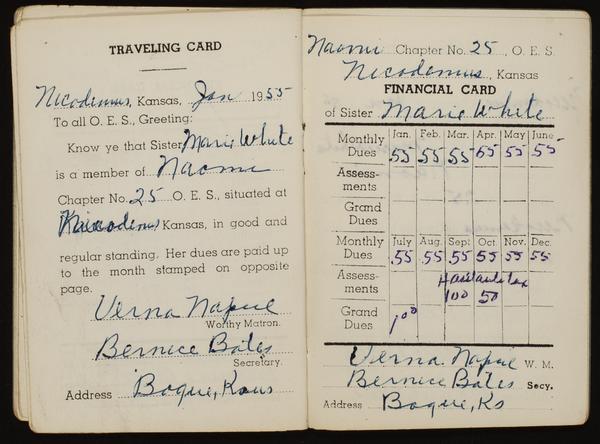 TRAVELING CARD
Nicodemus, Kansas, Jan 1955
To all O. E. S., Greeting:
Know ye that Sister Marie White
is a member of Naomi
Chapter No. 25 O. E. S., situated at
Nicodemus Kansas, in good and
regular standing. Her dues are paid up
to the month stamped on opposite
page.
Verna Napue
Worthy Matron.
Bernice Bates
Secretary.
Address Bogue, Kans
Naomi Chapter No. 25, O. E. S.
Nicodemus, Kansas
FINANCIAL CARD
of Sister Marie White
Monthly Dues Jan. Feb. Mar. Apr. May June
.55 .55 .55 .55 .55 .55
Assess-
ments
Grand
Dues
Monthly Dues July Aug. Sept Oct. Nov. Dec.
.55 .55 .55 .55 .55 .55
Assess-
ments
100 50
Grand
Dues 1.00
Verna Napue W. M.
Bernice Bates Secy.
Address Bogue, Ks